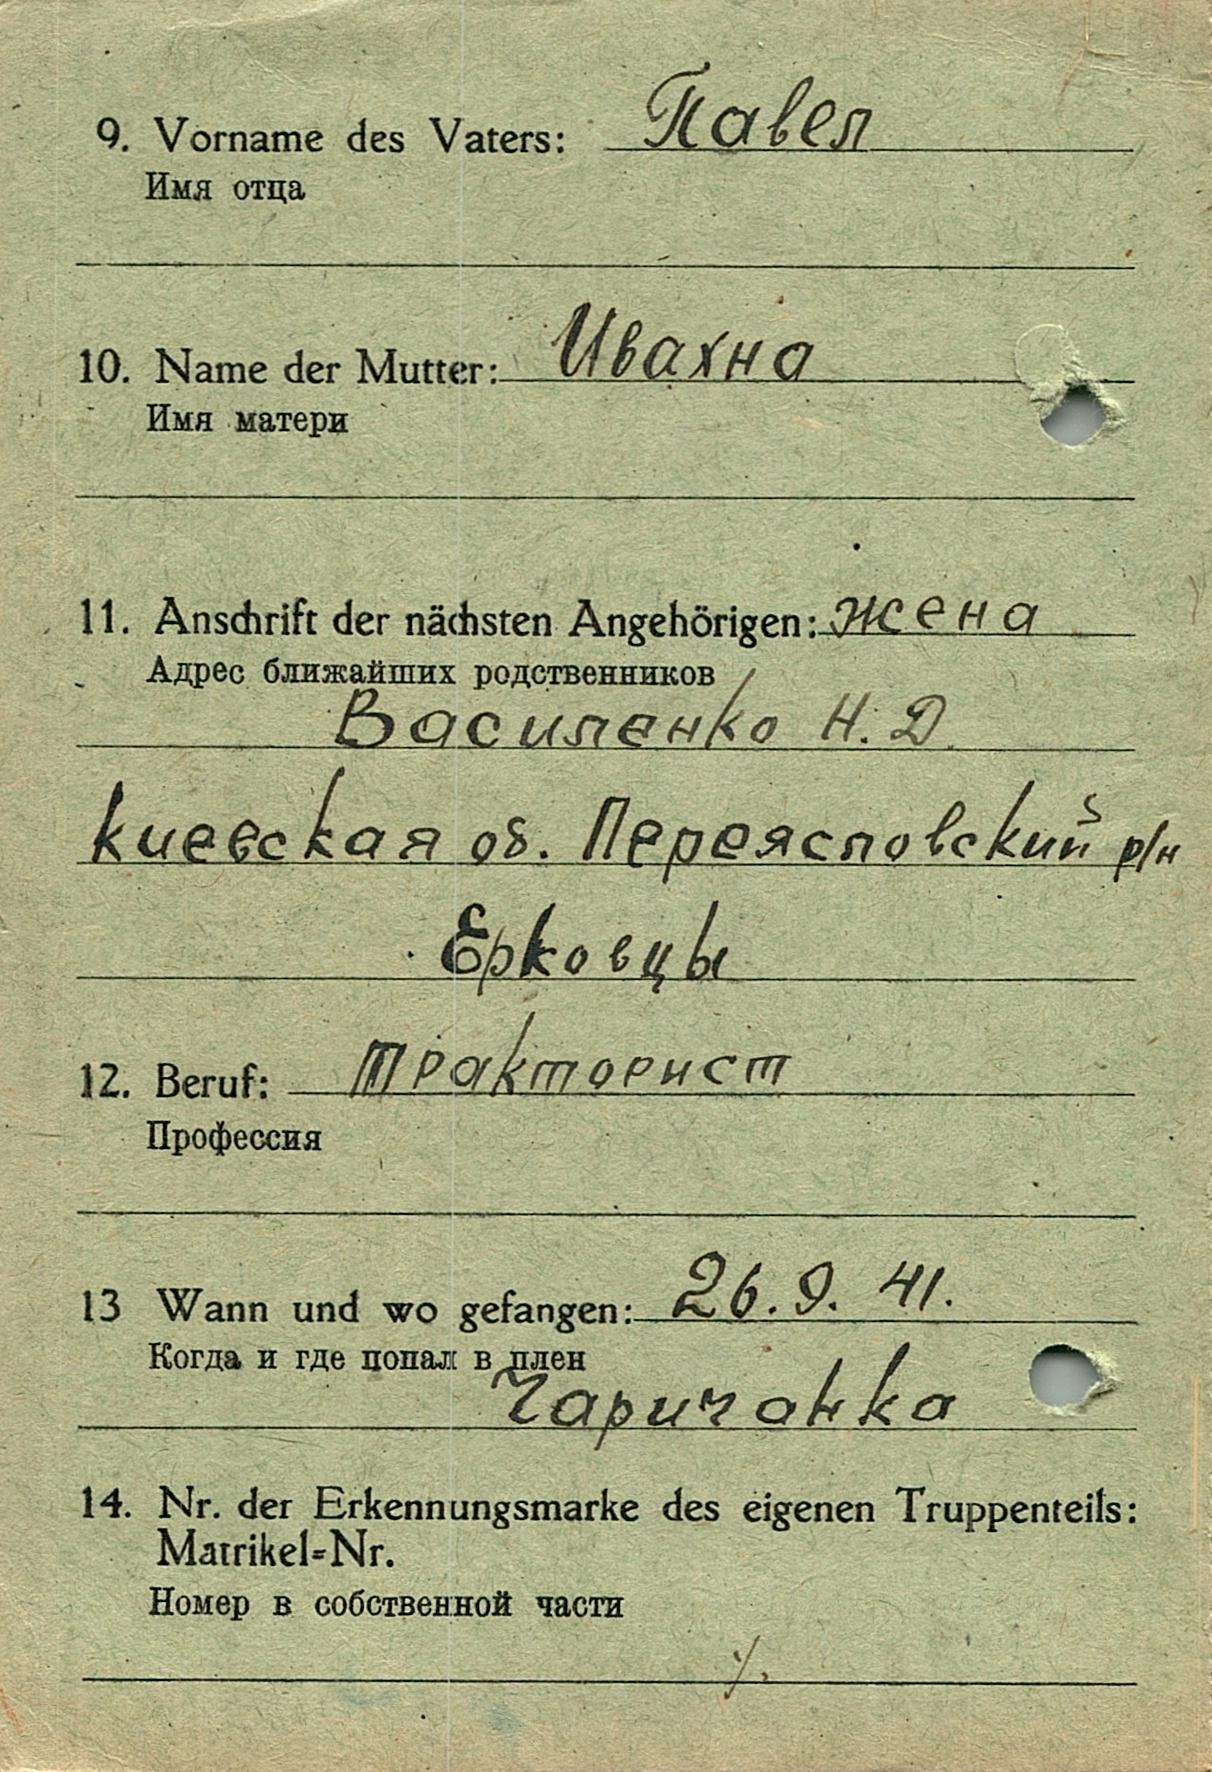 9. Vorname des Vaters: Павел
Имя отца
10. Name der Mutter: Ивахна
Имя матери
11. Anschrift der nächsten Angehörigen: жена
Адрес ближайших родственников
Василенко Н. Д.
Киевская об. Переясловский р/н
Ерковцы
12. Beruf: тракторист
Профессия
13 Wann und wo gefangen: 26. 9. 41.
Когда и где попал в плен
Чаричанка
14. Nr. der Erkennungsmarke des eigenen Truppenteils:
Matrikel-Nr.
Номер в собственной части